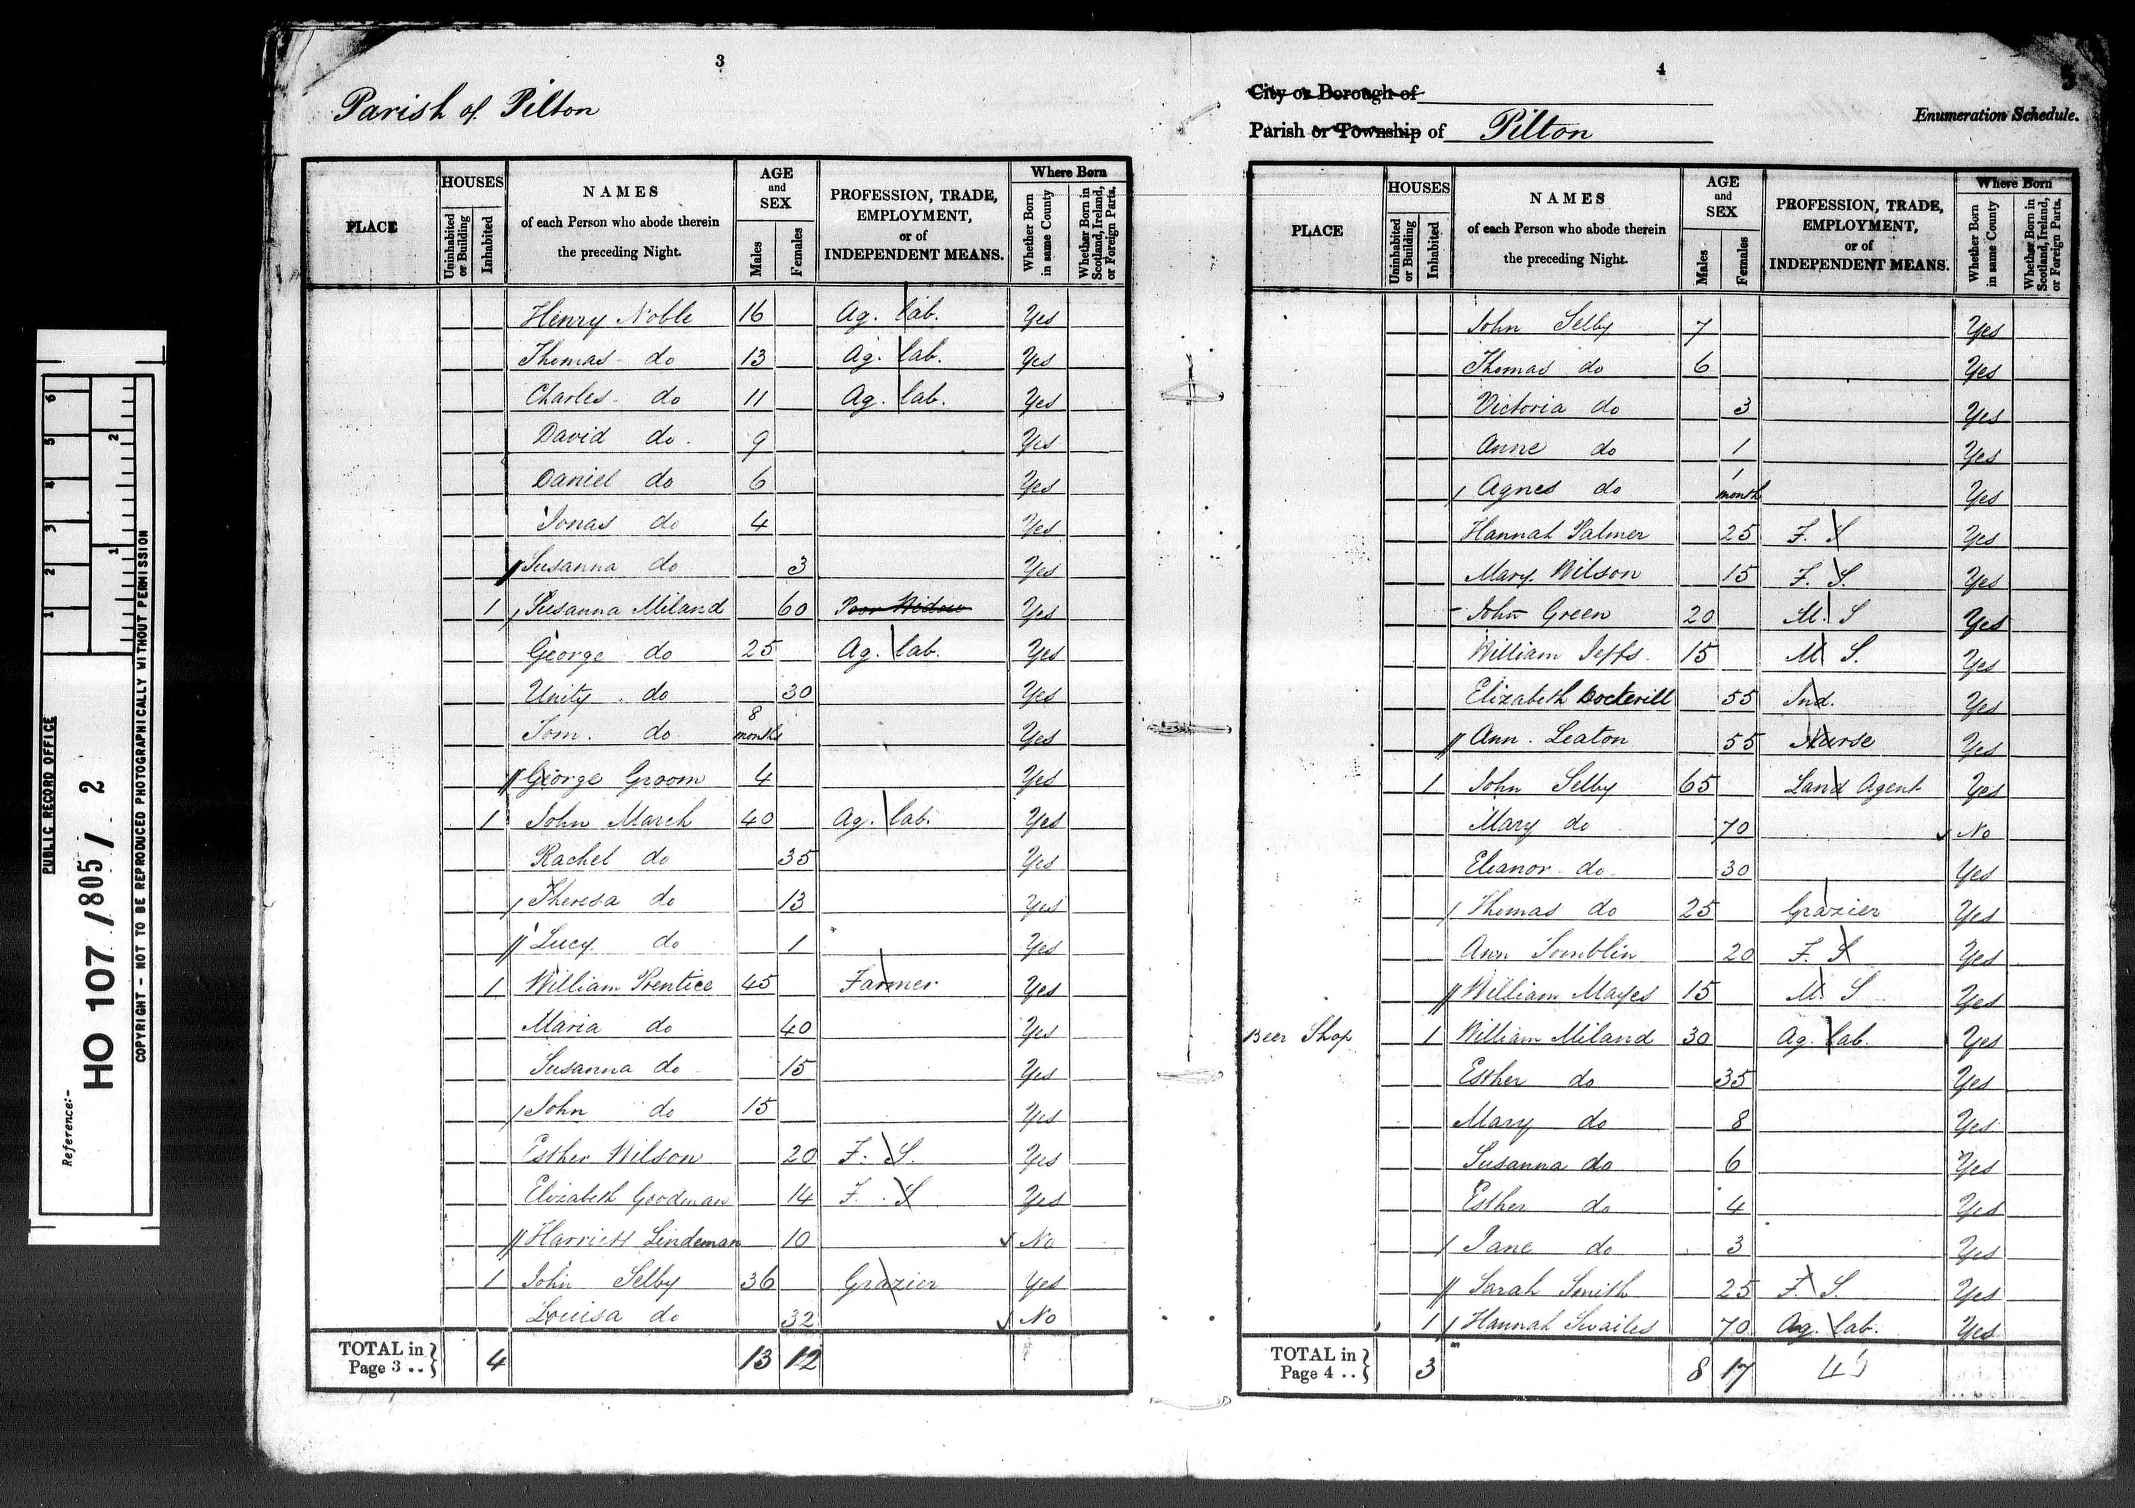 3
Parish of Pilton
PLACE
HOUSES
Uninhabited or Building
Inhabited
NAMES
of each Person who abode therein
the preceding Night.
AGE
and
SEX
Males
Females
PROFESSION, TRADE,
EMPLOYMENT,
or of
INDEPENDENT MEANS.
Where Born
Whether Born in same County
Whether Born in Scotland, Ireland, or Foreign Parts.
Henry Noble 16 Ag. lab. Yes
Thomas do 13 Ag. lab. Yes
Charles do 11 Ag. lab. Yes
David do. 9 Yes
Daniel do 6 Yes
Jonas do 4 Yes
Susanna do 3 Yes
1 Susanna Miland 60 Poor Widow Yes
George do 25 Ag. lab. Yes
Unity do 30 Yes
Tom. do 8 months Yes
George Groom 4 Yes
1 John March 40 Ag. lab. Yes
Rachel do 35 Yes
Theresa do 13 Yes
Lucy do 1 Yes
1 William Prentice 45 Farmer Yes
Maria do 40 Yes
Susanna do 15 Yes
John do 15 Yes
Esther Wilson 20 F. S. Yes
Elizabeth Goodman 14 F. S Yes
Harriett Lindeman 10 No
1 John Selby 36 Grazier Yes
Louisa do 32 No
TOTAL in
Page 3 .. } 4 13 12
4
City or Borough of
Parish or Township of Pilton
5
Enumeration Schedule.
PLACE
HOUSES
Uninhabited or Building
Inhabited
NAMES
of each Person who abode therein
the preceding Night.
AGE
and
SEX
Males
Females
PROFESSION, TRADE,
EMPLOYMENT,
or of
INDEPENDENT MEANS.
Where Born
Whether Born in same County
Whether Born in Scotland, Ireland, or Foreign Parts.
John Selby 7 Yes
Thomas do 6 Yes
Victoria do 3 Yes
Anne do 1 Yes
Agnes do 1 month Yes
Hannah Palmer 25 F. S Yes
Mary Wilson 15 F. S. Yes
John Green 20 M. S Yes
William Jeffs. 15 M S. Yes
Elizabeth Dockerill 55 Ind. Yes
Ann Leaton 55 Nurse Yes
1 John Selby 65 Land Agent Yes
Mary do 70 No
Eleanor do 30 Yes
Thomas do 25 Grazier Yes
Ann Tomblin 20 F. S Yes
William Mayes 15 M S Yes
Beer Shop 1 William Miland 30 Ag. lab. Yes
Esther do 35 Yes
Mary do 8 Yes
Susanna do 6 Yes
Esther do 4 Yes
Jane do 3 Yes
Sarah Smith 25 F. S. Yes
1 Hannah Swailes 70 Ag. lab. Yes
TOTAL in
Page 4 .. } 3 8 17
PUBLIC RECORD OFFICE
1 2 3 4 5 6
1 2
Reference:-
HO 107 / 805 / 2
COPYRIGHT - NOT TO BE REPRODUCED PHOTOGRAPHICALLY WITHOUT PERMISSION